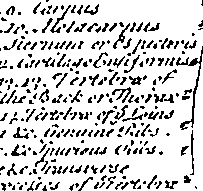 Carpus
Metacarpus
Sternum or Os pectoris
Cartilago Ensiformis
19.19. Vertebræ of
the Back or Thorax
Vertebræ of y Loins
&c. Genuine Ribs.
&c. Spurious Ribs.
&c. Transverse
Processes of y Vertebræ